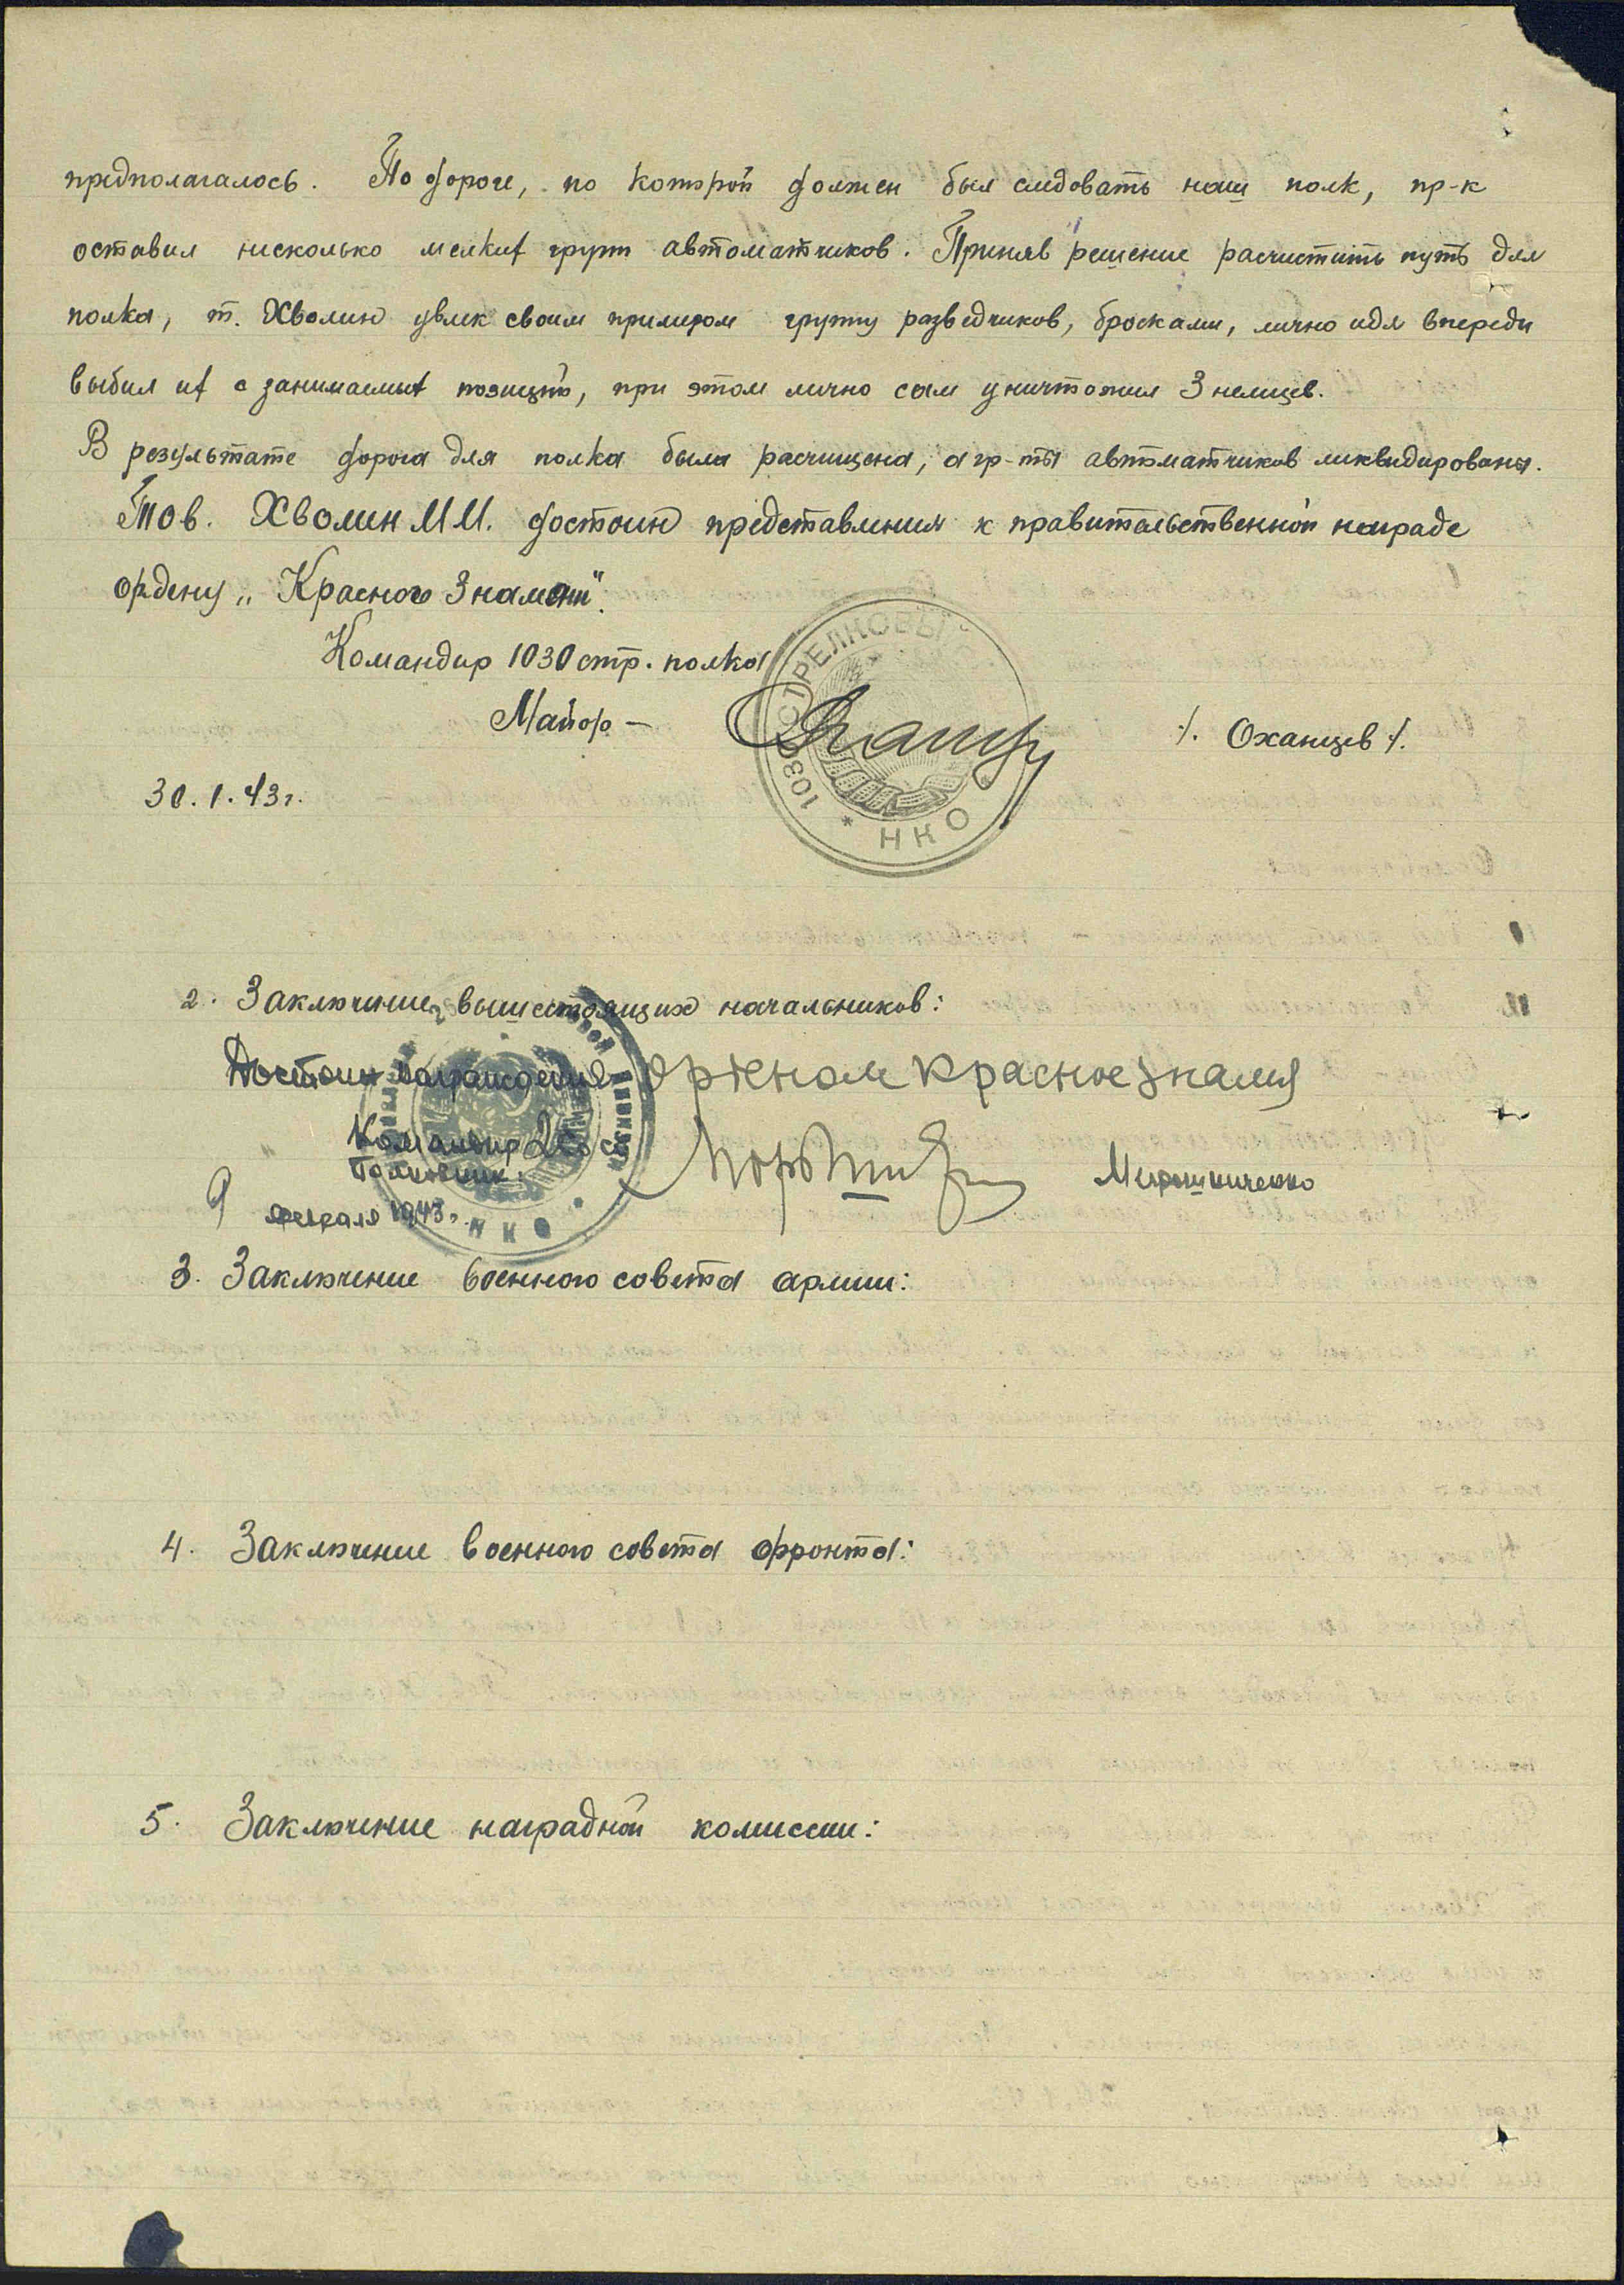 предполагалось. По дороге, по которой должен был следовать наш полк, пр-к
оставил несколько мелких групп автоматчиков. Приняв решение расчистить путь для
полка, т. Хволин увлек своим примером группу разведчиков, бросками, лично идя впереди
выбил их с занимаемых позиций, при этом лично сам уничтожил 3 немцев.
В результате дорога для полка была расчищена, а гр-пы автоматчиков ликвидированы.
Тов. Хволин М.И. достоин представления к правительственной награде
ордену „Красного Знамени".
Командир 1030 стр. полка
Майор – /. Оханцев /.
1030 СТРЕЛКОВЫЙ
* НКО *
30.1.43г.
2. Заключение вышестоящих начальников:
Достоин награждения орденом красное знамя
Командир
Полковник: Мирошниченко
9 февраля 1943г.
НКО
3. Заключение военного совета армии:
4. Заключение военного совета фронта:
5. Заключение наградной комиссии: